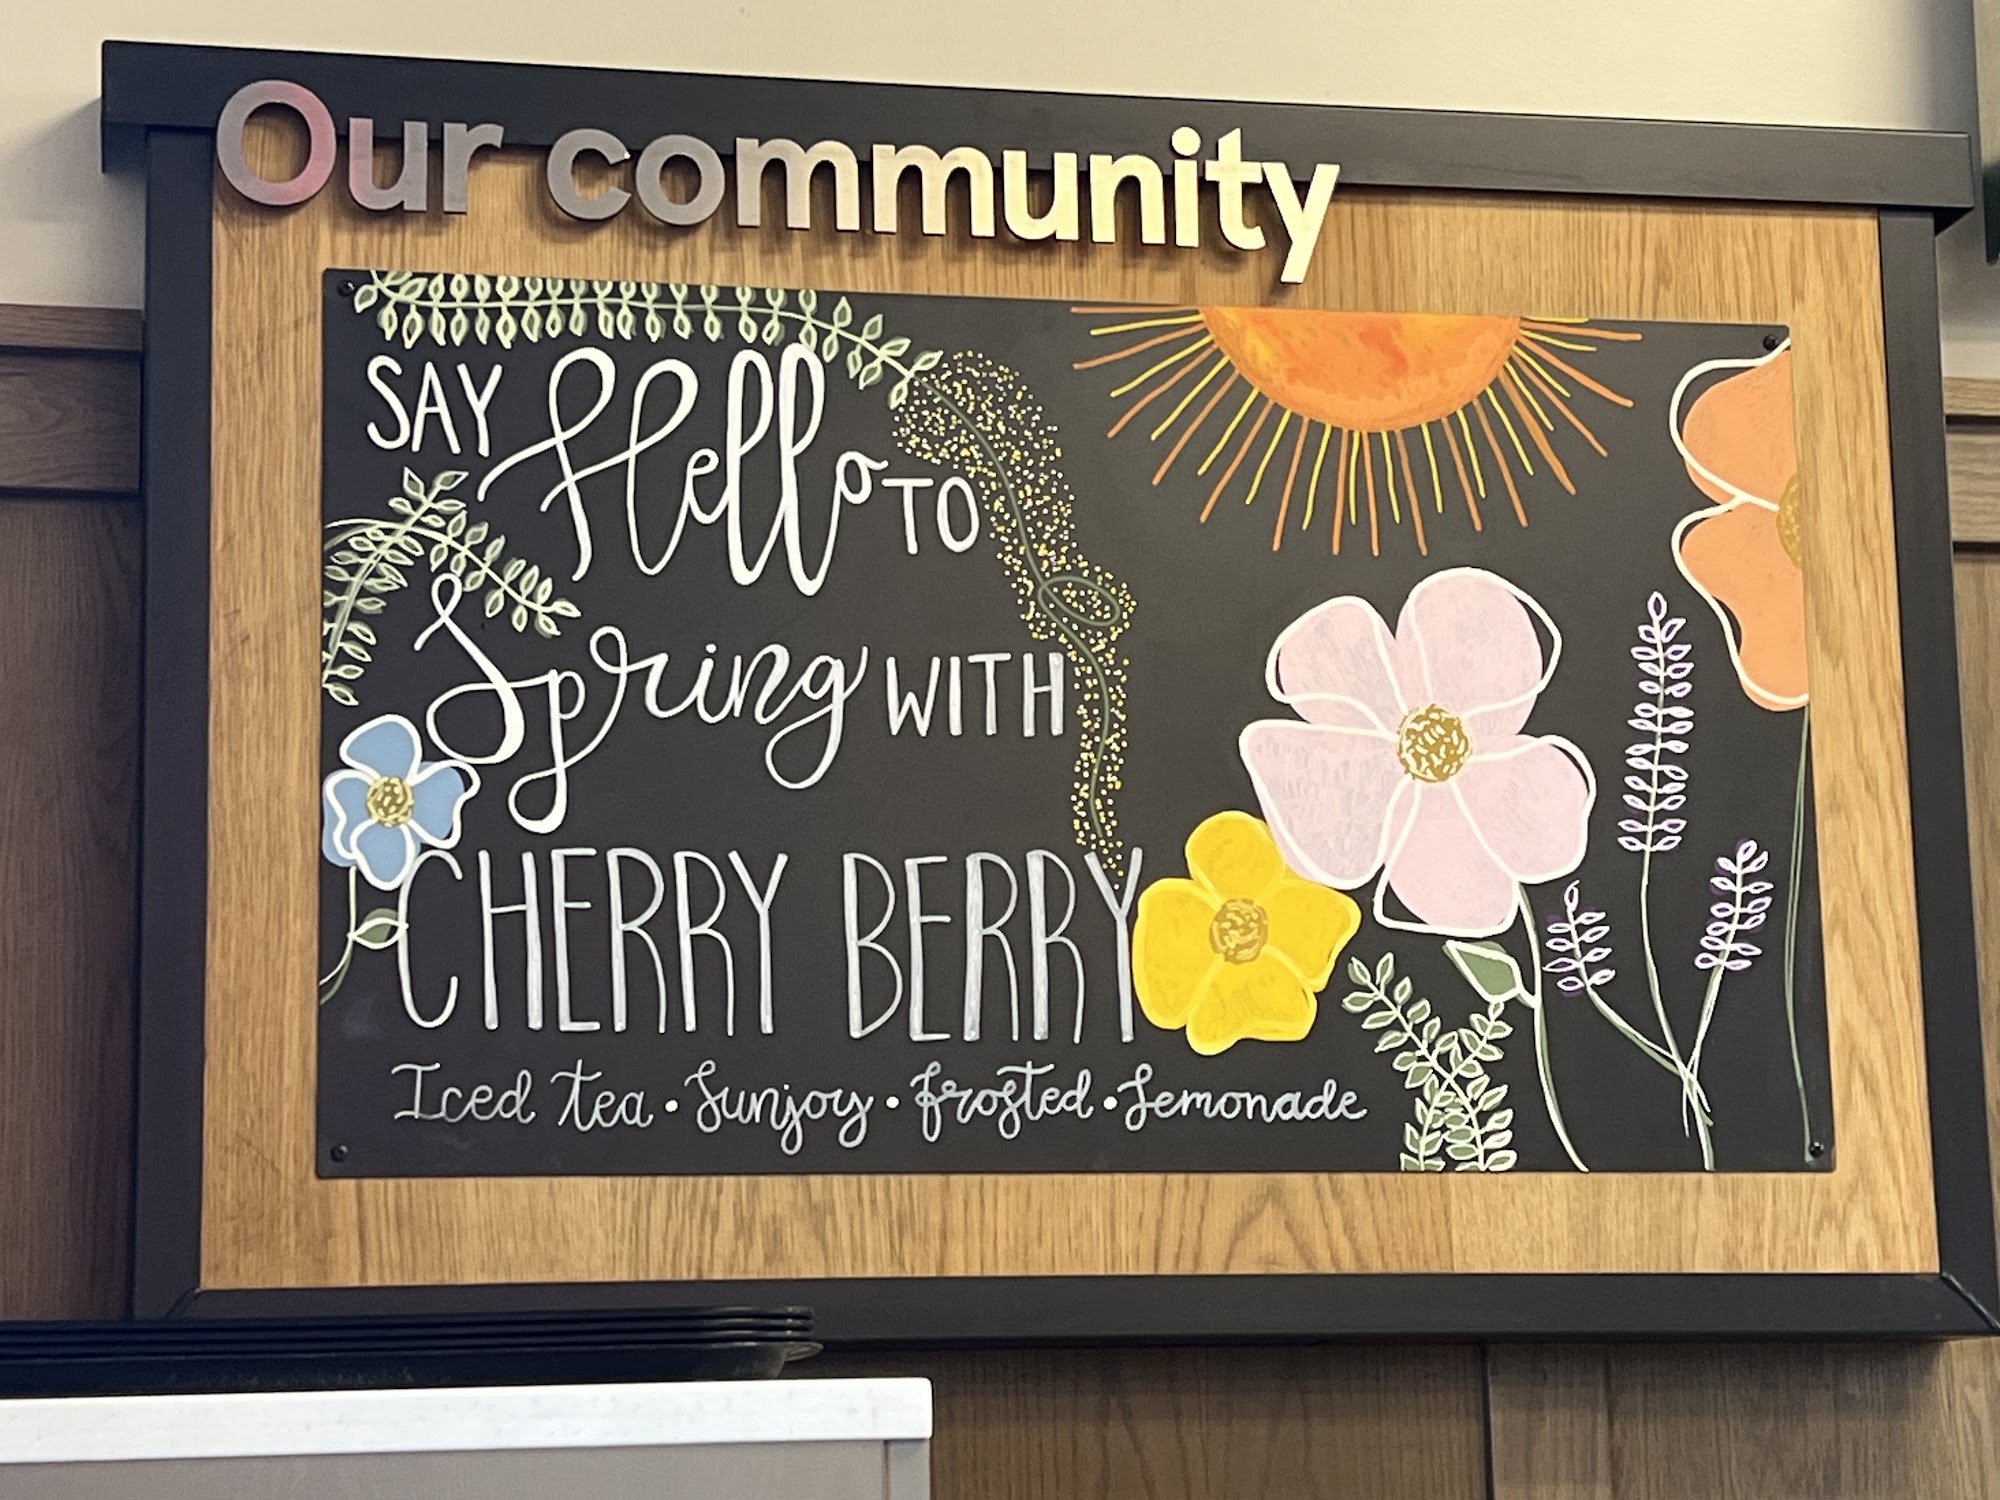 Our community
SAY Hello TO
Spring WITH
CHERRY BERRY
Iced tea • Sunjoy • frosted • Lemonade